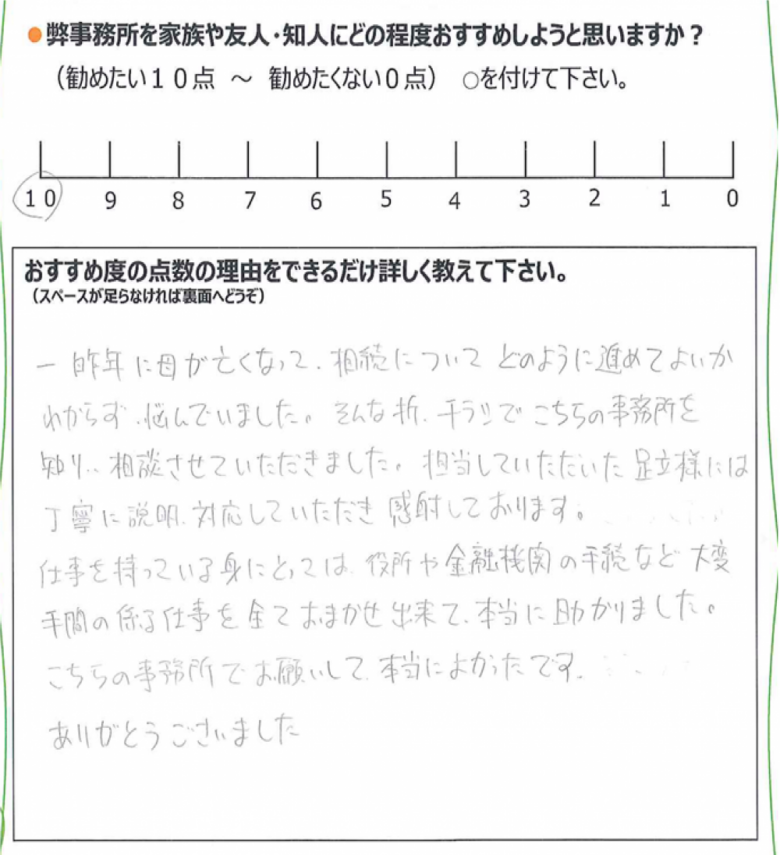 ●弊事務所を家族や友人・知人にどの程度おすすめしようと思いますか？
（勧めたい１０点 ～ 勧めたくない０点） ○を付けて下さい。
10 9 8 7 6 5 4 3 2 1 0
おすすめ度の点数の理由をできるだけ詳しく教えて下さい。
（スペースが足らなければ裏面へどうぞ）
一昨年に母が亡くなって、相続について どのように進めてよいか
わからず、悩んでいました。そんな折、チラシでこちらの事務所を
知り、相談させていただきました。担当していただいた足立様には
丁寧に説明、対応していただき 感射しております。
仕事を持っている身にとっては、役所や金融機関の手続など 大変
手間の係る仕事を全ておまかせ出来て、本当に助かりました。
こちらの事務所でお願いして、本当によかったです。
ありがとうございました